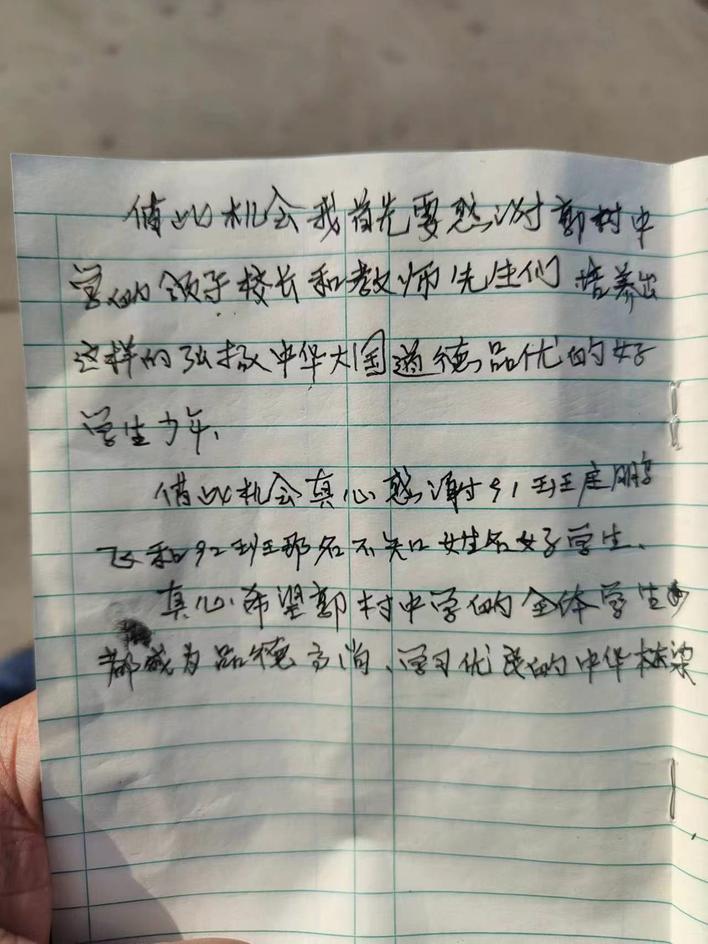 借此机会我首先要感谢郭村中
学的领导校长和教师先生们培养出
这样的弘扬中华大国道德品优的好
学生少年、
借此机会真心感谢91班王庭鹏
飞和92班那名不知姓名好学生、
真心希望郭村中学的全体学生
都成为品德高尚、学习优良的中华栋梁